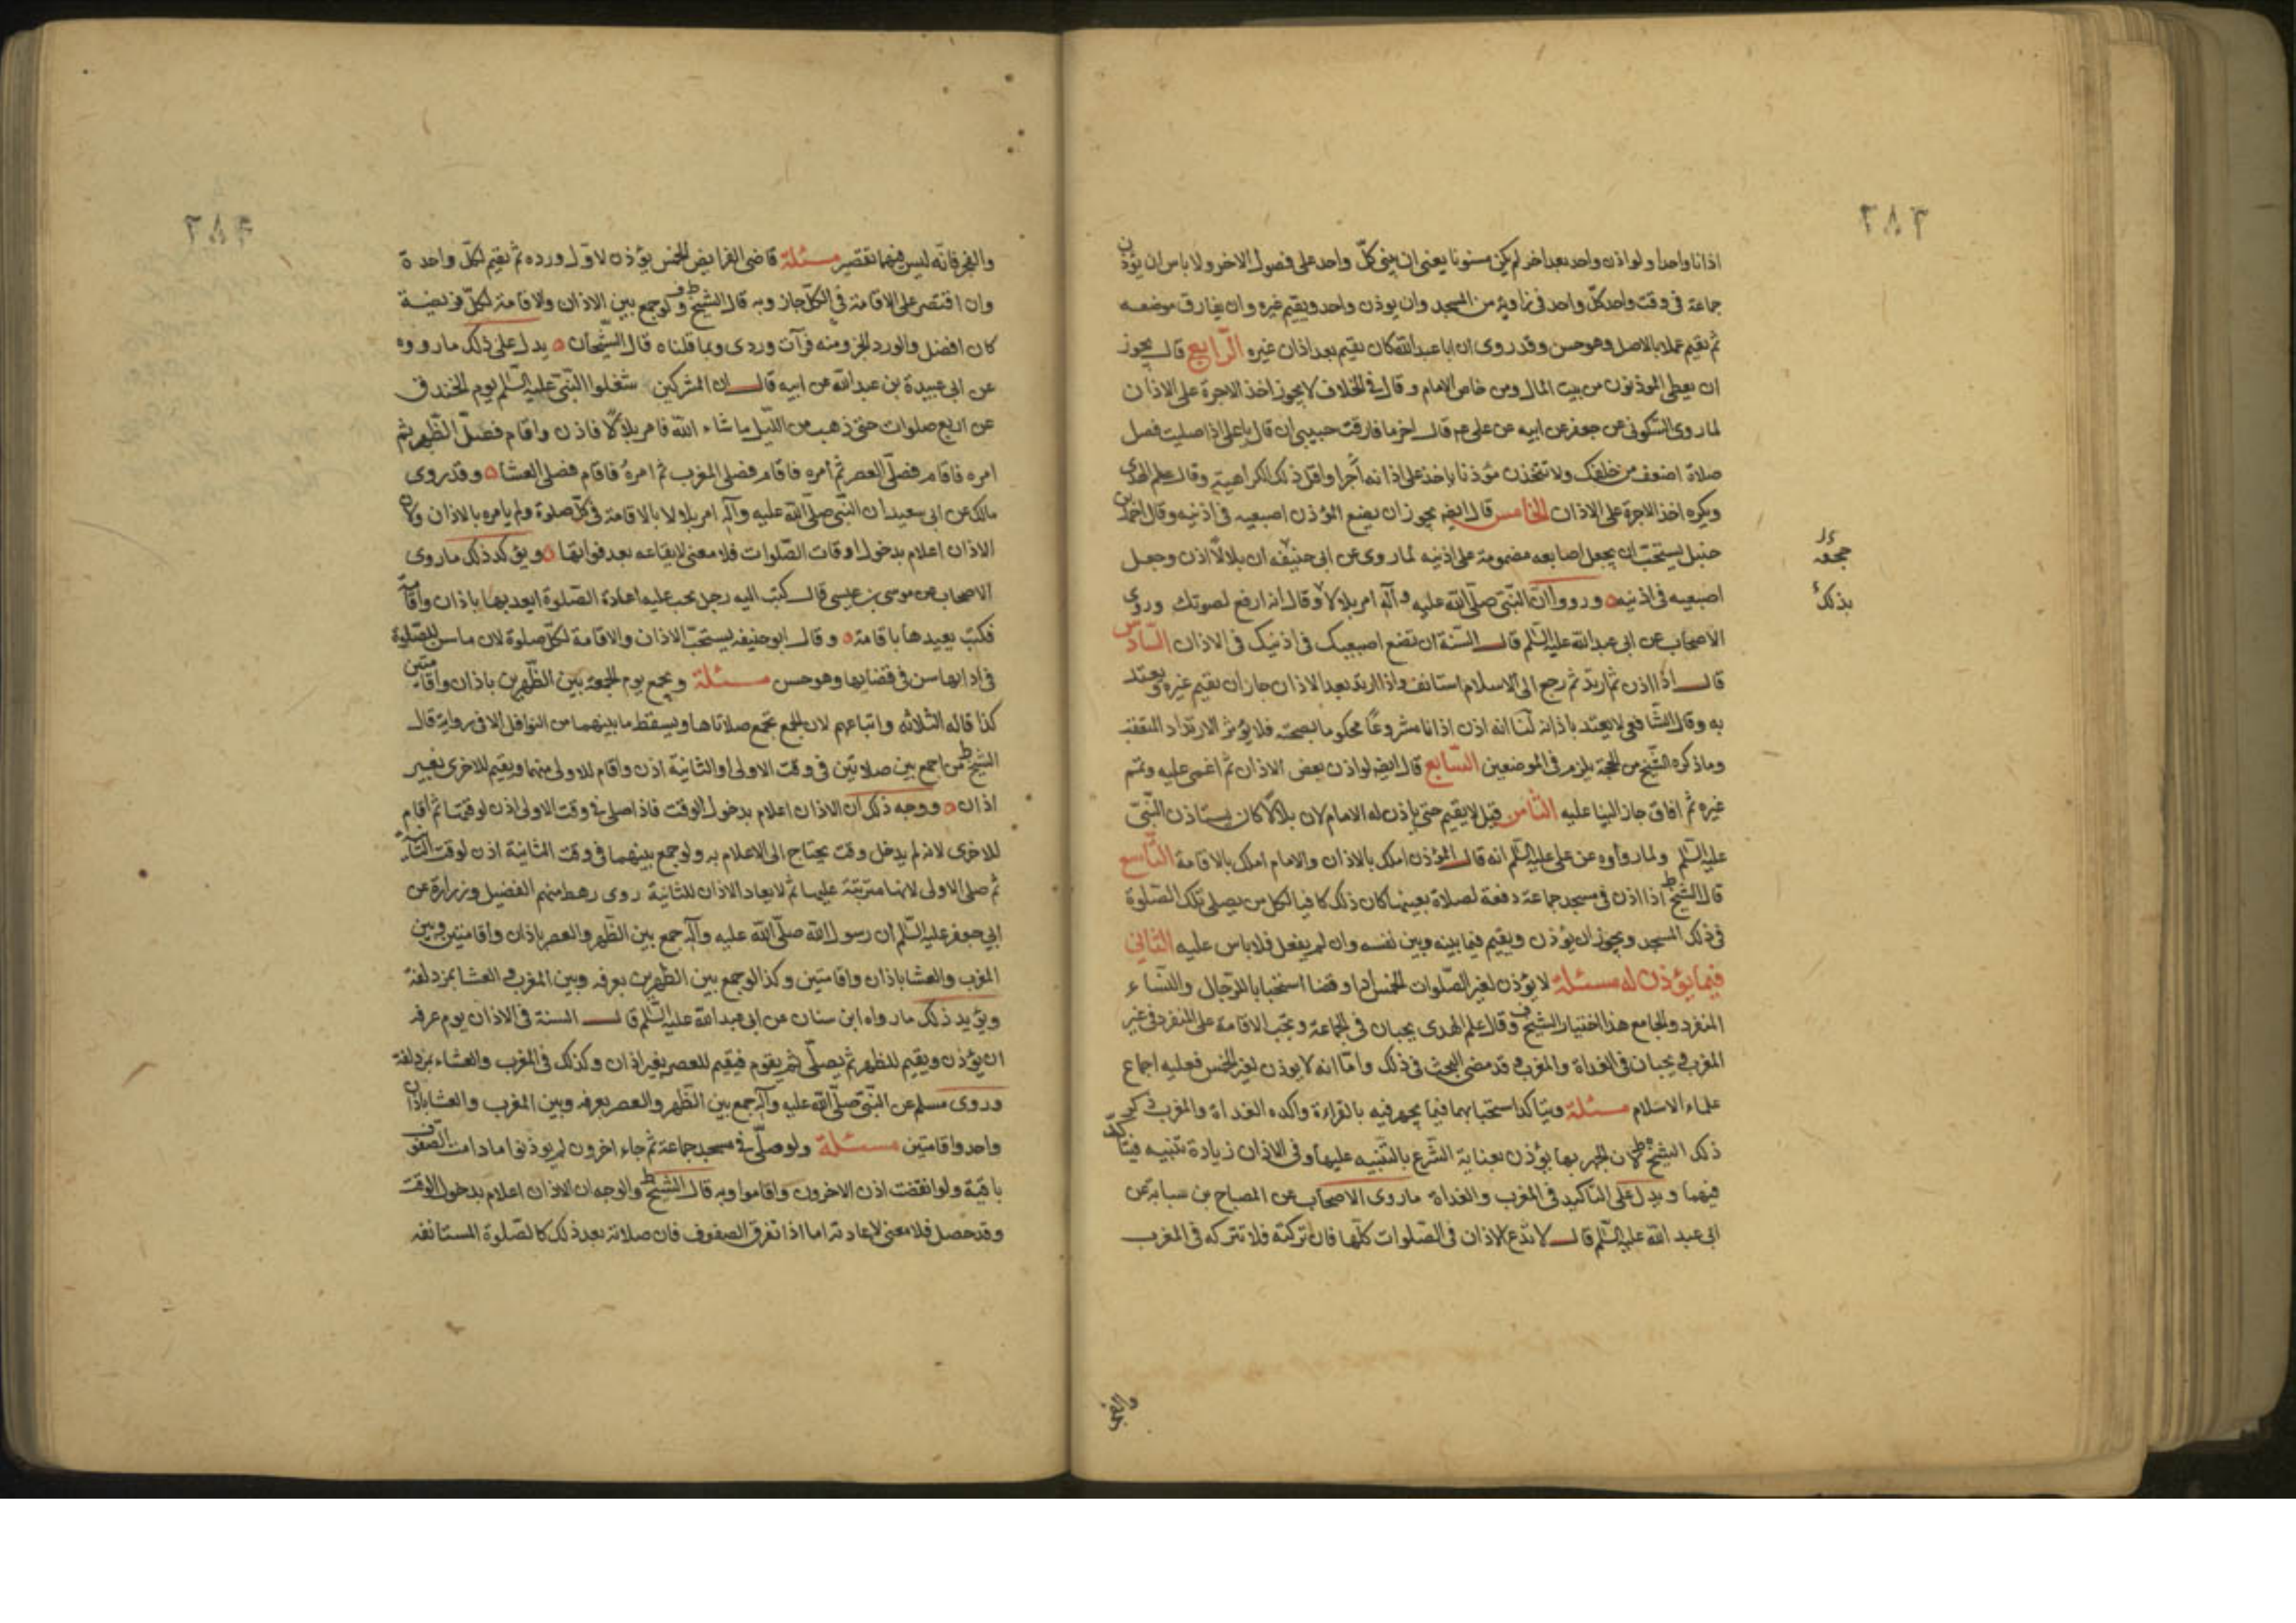 ٢٨٣
اذانا واحدا ولو اذن واحد بعد اخر لم يكن مسنونا يعنى ان يبنى كلّ واحد على فصول الاخر ولا باس ان يؤذن
جماعة فى وقت واحد كلّ واحد فى زاوية من المسجد وان يوذن واحد ويقيم غيره وان يفارق موضعه
ثم يقيم عملا بالاصل وهو حسن وقد روى ان ابا عبد الله كان يقيم بعد اذان غيره الرّابع قال يجوز
ان يعطى الموذنون من بيت المال ومن خاص الامام و قال فى الخلاف لا يجوز اخذ الاجرة على الاذان
لما روى السّكونى عن جعفر عن ابيه عن على عم قال اخر ما فارقت حبيبى ان قال يا على اذا صليت فصل
صلاة اضعف من خلفك ولا تتخذن مؤذنا ياخذ على اذانه أجرا واقل ذلك الكراهية وقال علم الهدى
ويكره اخذ الاجرة على الاذان الخامس قال ايضا يجوز ان يضع المؤذن اصبعيه فى اذنيه وقال احمد بن
حنبل يستحبّ ان يجعل اصابعه مضمومة على اذنيه لما روى عن ابى حنيفه ان بلالاً اذن وجعل
اصبعيه فى اذنيه ورووا انّ النّبى صلّى الله عليه وآله امر بلالا وقال انه ارفع لصوتك وروى
الاصحاب عن ابى عبد الله عليه السّلم قال السّنة ان تضع اصبعيك فى اذنيك فى الاذان السّادس
قال اذا اذن ثم ارتدّ ثم رجع الى الاسلام استانف واذا ارتد بعد الاذان جاز ان يقيم غيره ويعتد
به وقال الشّافعى لا يعتد باذانه لنا انه اذن اذانا مشروعًا محكوما بصحته فلا يؤثر الارتداد المتعقب
وما ذكره الشّيخ من الحجة يلزم فى الموضعين السّابع قال ايضا لو اذن بعض الاذان ثم اغمى عليه وتمم
غيره ثم افاق جاز البنا عليه الثّامن قيل لا يقيم حتى ياذن له الامام لان بلالًا كان يستاذن النّبىّ
عليه السّلم ولما رواوه عن على عليه السّلم انه قال المؤذن املك بالاذان والامام املك بالاقامة التّاسع
قال الشيخ ط اذا اذن فى مسجد جماعة دفعة لصلاة بعينها كان ذلك كافيا لكل من يصلى تلك الصّلوة
فى ذلك المسجد ويجوز ان يؤذن ويقيم فيما بينه وبين نفسه وان لم يفعل فلا باس عليه الثّانى
فيما يؤذن له مسئلة لا يؤذن لغير الصّلوات الخمس ادا وقضا استحبابا للرّجال والنّساء
المنفرد والجامع هذا اختيار الشيخ ف وقال علم الهدى يجبان فى الجماعة وتجب الاقامة على المنفرد فى غير
المغرب ويجبان فى الغداة والمغرب وقد مضى البحث فى ذلك وامّا انه لا يوذن لغير الخمس فعليه اجماع
علماء الاسلام مسئلة ويتاكد استحبابهما فيما يجهر فيه بالقراءة واكده الغداة والمغرب
ذكر الشيخ ط لان الجهر بها يؤذن بعناية الشّرع بالتّنبيه عليها وفى الاذان زيادة تنبيه فيتاكد
فيهما ويدل على التاكيد فى المغرب والغداة ما روى الاصحاب عن الصباح بن سبابة عن
ابى عبد الله عليه السّلم قال لا تدع الاذان فى الصّلوات كلّها فان تركته فلا تتركه فى المغرب
والفجر
جمعه
بذلك
٢٨٤
والفجر فانّه ليس فيهما تقتصر مسئلة قاضى الفرايض الخمس يؤذن لاوّل ورده ثم يقيم لكلّ واحدة
وان اقتصر على الاقامة فى الكلّ جاز وبه قال الشيخ ط وف ولو جمع بين الاذان والاقامة لكلّ فريضة
كان افضل والورد الجزو منه قرآت وردى وبما قلناه قال الشّيخان يدل على ذلك ما رووه
عن ابى عبيدة بن عبد الله عن ابيه قال ان المشركين شغلوا النّبىّ عليه السّلم يوم الخندق
عن اربع صلوات حتى ذهب من اللّيل ما شاء الله فامر بلالًا فاذن واقام فصلّى الظّهر ثم
امره فاقام فصلّى العصر ثم أمره فاقام فصلى المغرب ثم امرهُ فاقام فصلى العشا وقد روى
مالك عن ابى سعيد ان النّبىّ صلّى الله عليه وآله امر بلالا بالاقامة فى كلّ صلوة ولم يامره بالاذان ولان
الاذان اعلام بدخول اوقات الصّلوات فلا معنى لايقاعه بعد فواتها ويؤكد ذلك ما روى
الاصحاب عن موسى بن عيسى قال كتبت اليه رجل يجب عليه اعادة الصّلوة ايعيدها باذان واقامة
فكتب يعيدها باقامة وقال ابو حنيفه يستحبّ الاذان والاقامة لكلّ صلوة لان ما سن للصّلوة
فى ادائها سن فى قضائها وهو حسن مسئلة ويجمع يوم الجمعة بين الظّهرين باذان واقامتين
كذا قاله الثّلاثة واتباعهم لان الجمع تجمع صلاتاها ويسقط ما بينهما من النوافل الا فى رواية قال
الشيخ ط من اجمع بين صلاتين فى وقت الاولى او الثانية اذن واقام للاولى منهما ويقيم للاخرى بغير
اذان ووجه ذلك ان الاذان اعلام بدخول الوقت فاذا صلى فى وقت الاولى اذن لوقتها ثم اقام
للاخرى لانه لم يدخل وقت يحتاج الى الاعلام به ولو جمع بينهما فى وقت الثانية اذن لوقت الثّانية
ثم صلى الاولى لانها مترتبة عليها ثم لا يعاد الاذان للثانية روى رهط منهم الفضيل وزرارة عن
ابى جعفر عليه السّلم ان رسول الله صلّى الله عليه وآله جمع بين الظّهر والعصر باذان واقامتين وبين
المغرب والعشا باذان واقامتين وكذا لو جمع بين الظهرين بعرفه وبين المغرب والعشا بمزدلفة
ويؤيد ذلك ما رواه ابن سنان عن ابى عبد الله عليه السّلم قال السنة فى الاذان يوم عرفه
ان يؤذن ويقيم للظهر ثم يصلّى ثم يقوم فيقيم للعصر بغير اذان وكذلك فى المغرب والعشاء بمزدلفة
وروى مسلم عن النّبىّ صلّى الله عليه وآله جمع بين الظّهر والعصر بعرفه وبين المغرب والعشا باذان
واحد واقامتين مسئلة ولو صلّى فى مسجد جماعة ثم جاء اخرون لم يوذنوا ما دامت الصّفوف
باقية ولو انقضت اذن الاخرون واقاموا وبه قال الشيخ ط والوجه ان الاذان اعلام بدخول الوقت
وقد حصل فلا معنى لاعادته اما اذا تفرق الصفوف فان صلاته بعد ذلك كالصّلوة المستانفه